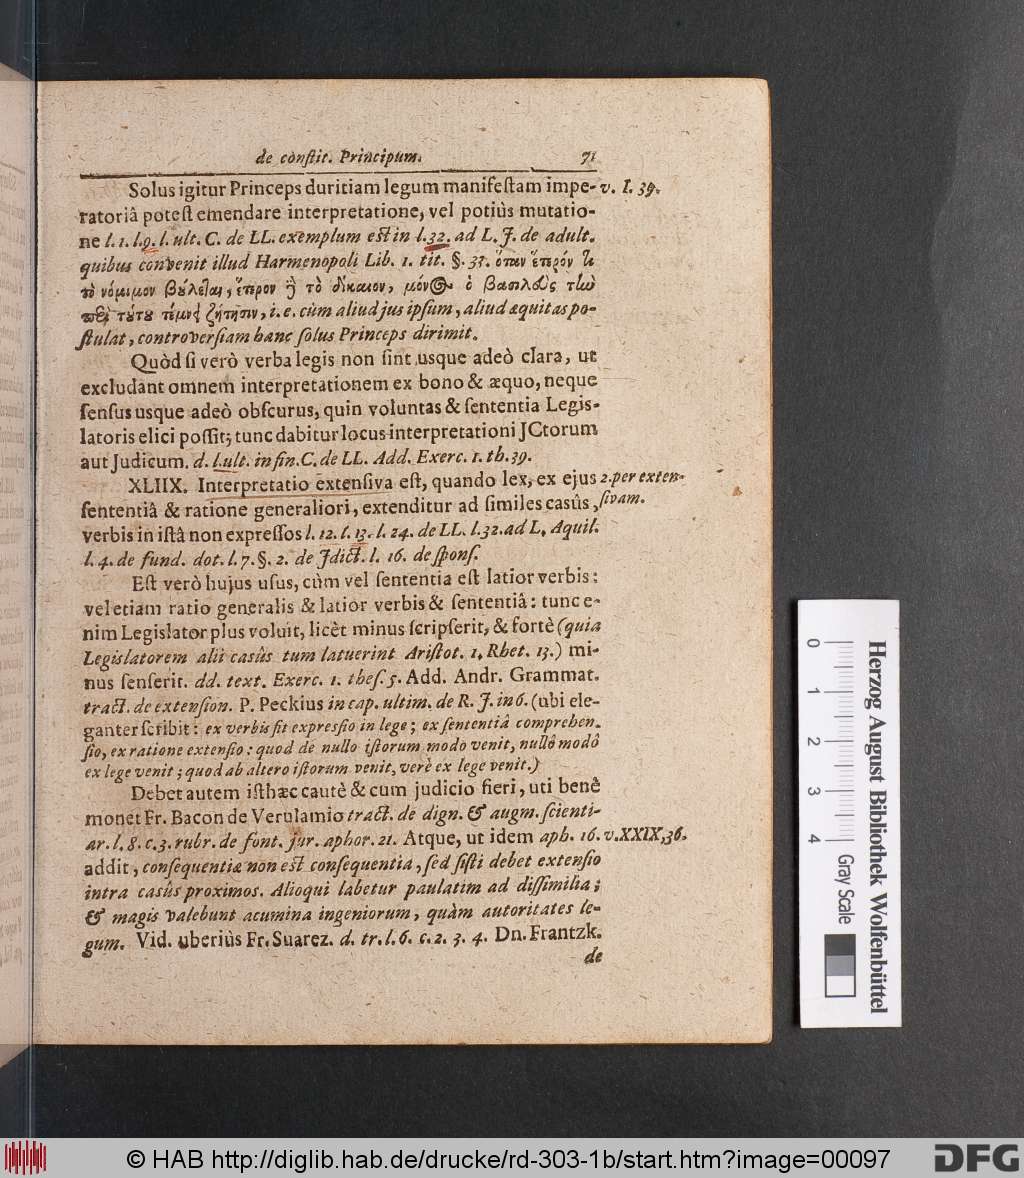 de constit. Principum. 71
Solus igitur Princeps duritiam legum manifestam impe- v. I. 39.
ratoriâ potest emendare interpretatione, vel potiùs mutatio-
ne l. 1. l. 9. l. ult. C. de LL. exemplum est in l. 32. ad L. J. de adult.
quibus convenit illud Harmenopoli Lib. 1. tit. §. 33. ὅταν ἕτερόν τι
τὸ νόμιμον βούλεται, ἕτερον ἢ τὸ δίκαιον, μόνος ὁ βασιλεὺς τὴν
περὶ τούτου τέμνει ζήτησιν, i. e. cùm aliud jus ipsum, aliud æquitas po-
stulat, controversiam hanc solus Princeps dirimit.
Quòd si verò verba legis non sint usque adeò clara, ut
excludant omnem interpretationem ex bono & æquo, neque
sensus usque adeò obscurus, quin voluntas & sententia Legis-
latoris elici possit; tunc dabitur locus interpretationi JCtorum
aut Judicum. d. l. ult. in fin. C. de LL. Add. Exerc. 1. th. 39.
XLIIX. Interpretatio extensiva est, quando lex, ex ejus 2. per exten-
sententiâ & ratione generaliori, extenditur ad similes casûs, sivam.
verbis in istâ non expressos l. 12. l. 13. l. 24. de LL. l. 32. ad L. Aquil.
l. 4. de fund. dot. l. 7. §. 2. de Jdict. l. 16. de spons.
Est verò hujus usus, cùm vel sententia est latior verbis:
vel etiam ratio generalis & latior verbis & sententiâ: tunc e-
nim Legislator plus voluit, licèt minus scripserit, & fortè (quia
Legislatorem alii casûs tum latuerint Aristot. 1. Rhet. 13.) mi-
nus senserit. dd. text. Exerc. 1. thes. 5. Add. Andr. Grammat.
tract. de extension. P. Peckius in cap. ultim. de R. J. in 6. (ubi ele-
ganter scribit: ex verbis fit expressio in lege; ex sententiâ comprehen-
sio, ex ratione extensio: quod de nullo istorum modo venit, nullô modô
ex lege venit; quod ab altero istorum venit, verè ex lege venit.)
Debet autem isthæc cautè & cum judicio fieri, uti benè
monet Fr. Bacon de Verulamio tract. de dign. & augm. scienti-
ar. l. 8. c. 3. rubr. de font. jur. aphor. 21. Atque, ut idem aph. 16. v. XXIX, 36.
addit, consequentiæ non est consequentia, sed sisti debet extensio
intra casûs proximos. Alioqui labetur paulatim ad dissimilia;
& magis valebunt acumina ingeniorum, quàm autoritates le-
gum. Vid. uberiùs Fr. Suarez. d. tr. l. 6. c. 2. 3. 4. Dn. Frantzk.
de
0 1 2 3 4
Gray Scale
Herzog August Bibliothek Wolfenbüttel
© HAB http://diglib.hab.de/drucke/rd-303-1b/start.htm?image=00097
DFG